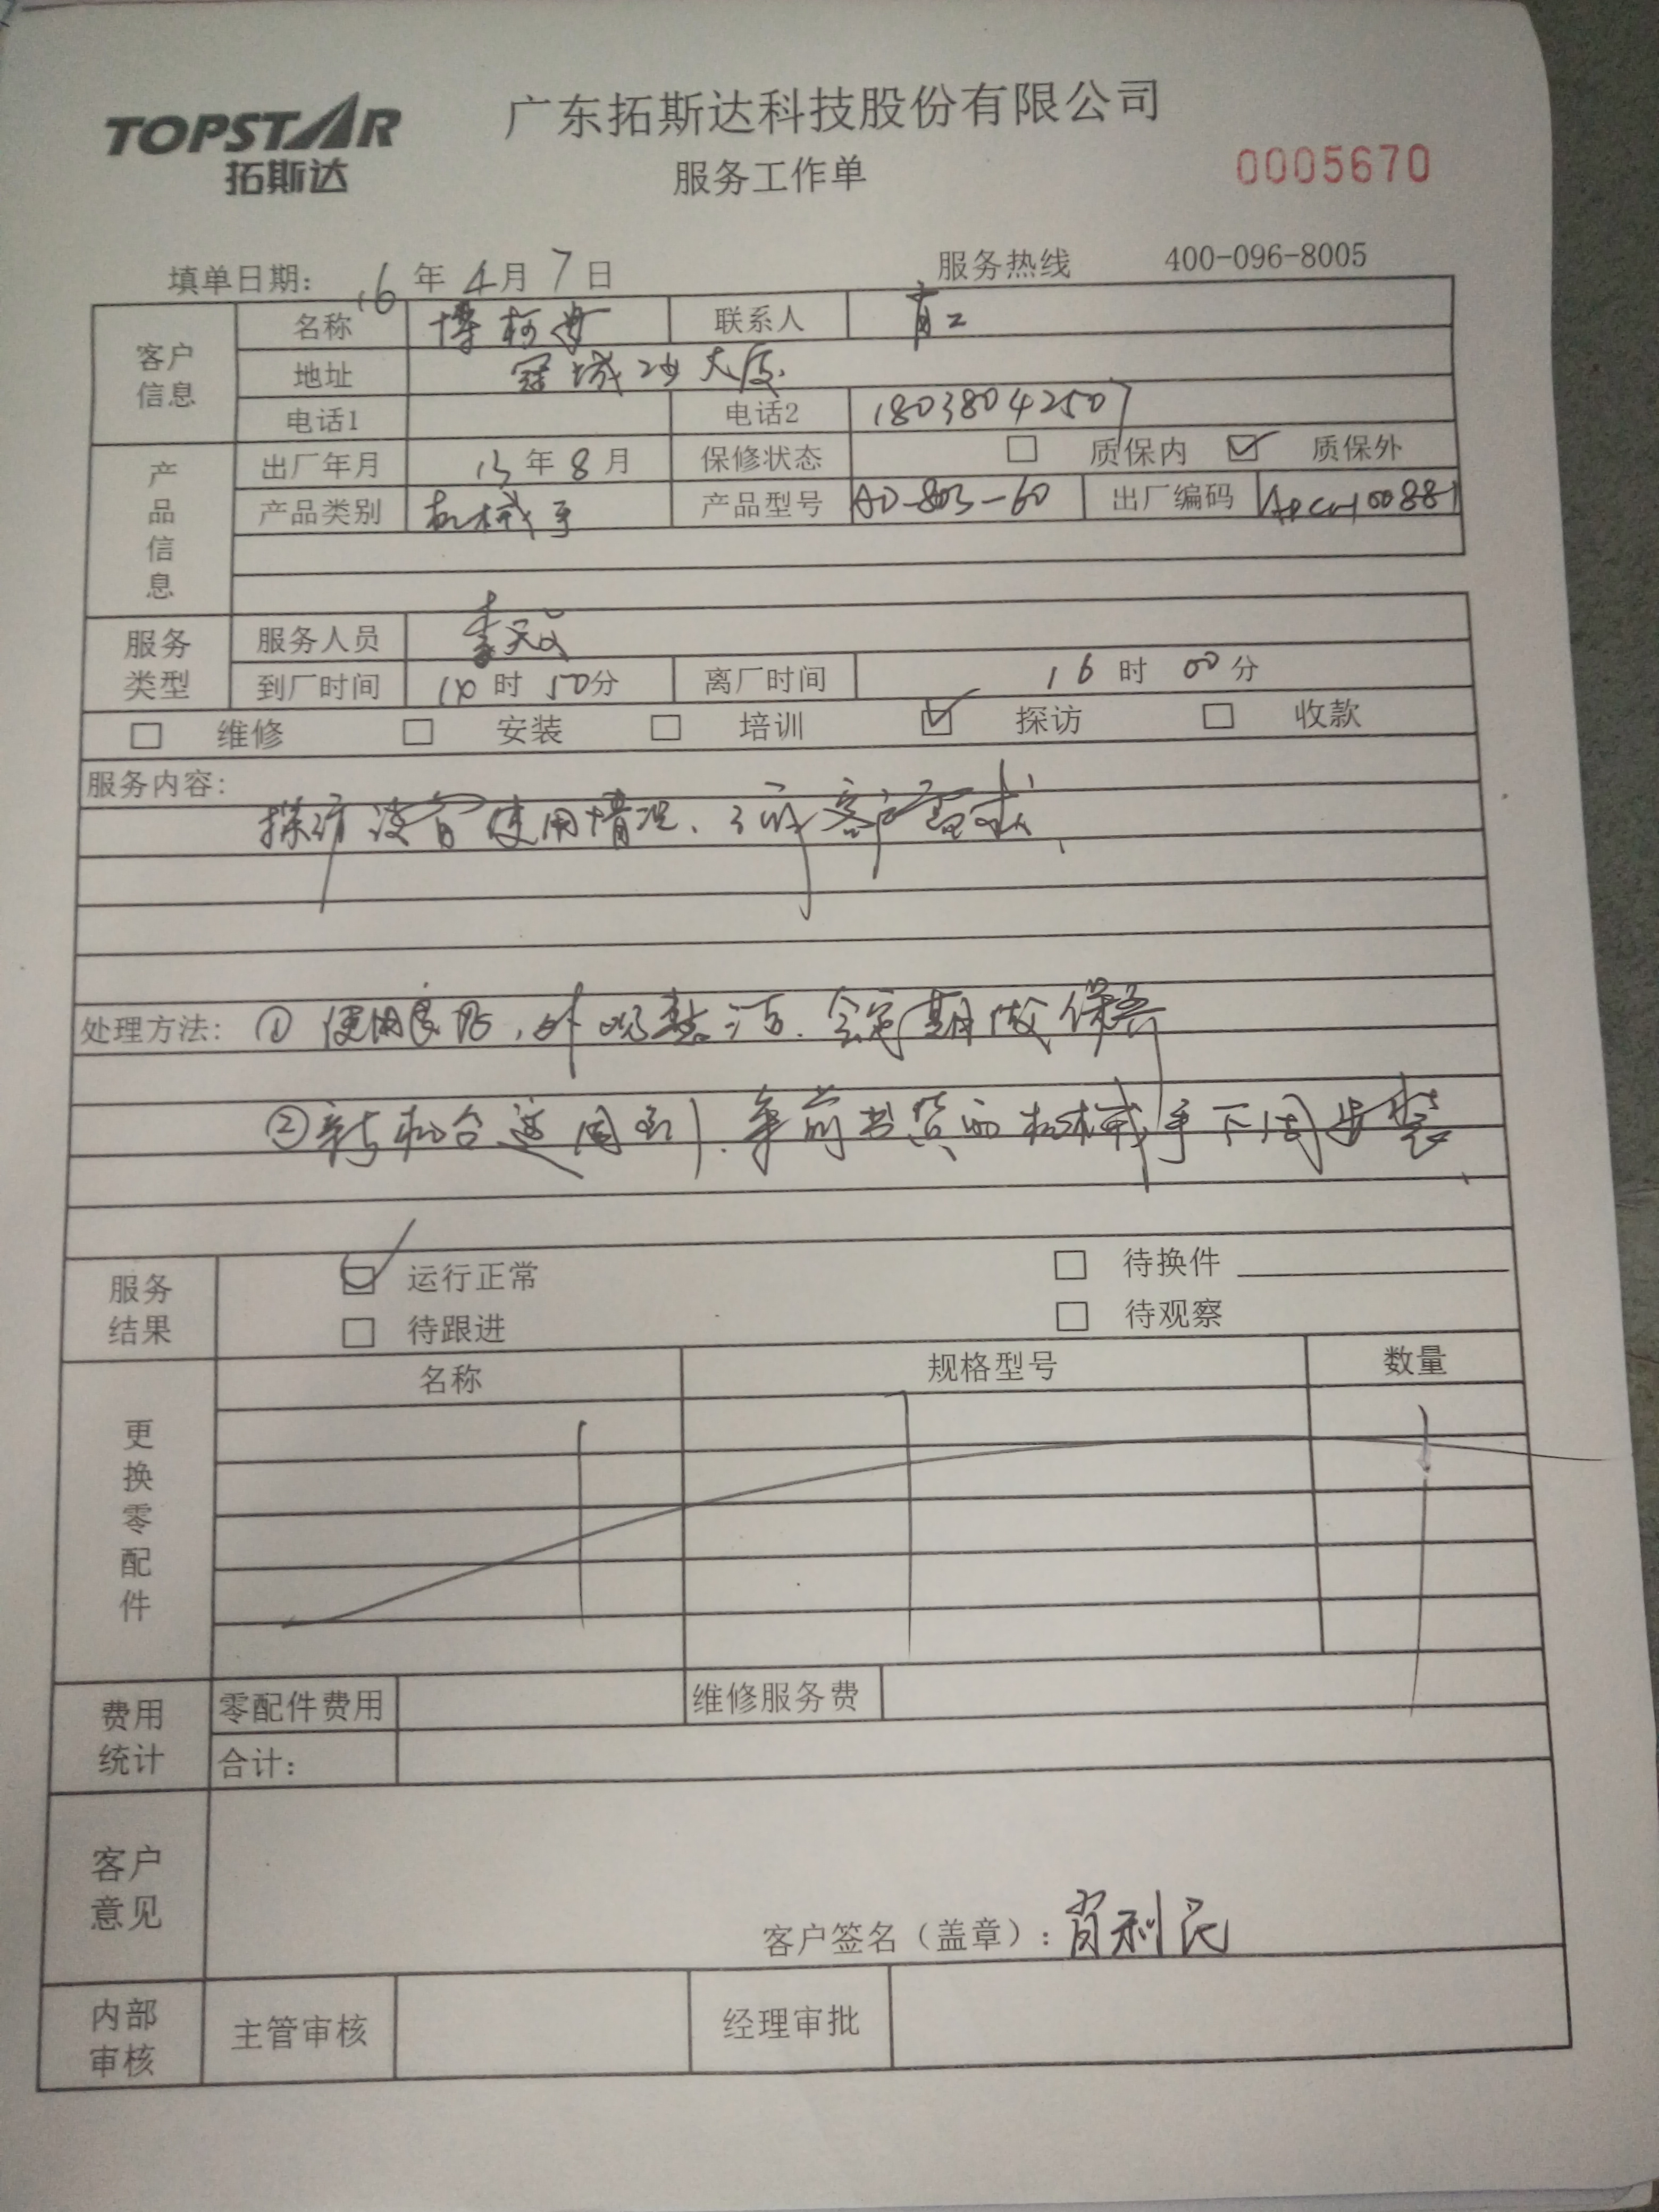 TOPSTAR
拓斯达
广东拓斯达科技股份有限公司
服务工作单
0005670
填单日期: 16 年 4 月 7 日
服务热线 400-096-8005
客户信息
名称 博柯 联系人 肖工
地址 冠城 大厦
电话1 电话2 18038042507
产品信息
出厂年月 13 年 8 月 保修状态 □ 质保内 ☑ 质保外
产品类别 机械手 产品型号 AD-803-60 出厂编码
服务类型
服务人员 李天
到厂时间 时 50 分 离厂时间 16 时 00 分
□ 维修 □ 安装 □ 培训 ☑ 探访 □ 收款
服务内容:
探访设备使用情况、了解客户需求
处理方法: ① 使用良好,外观整洁.会定期做保养
② 机台 前出货的机械手下周安装
服务结果
☑ 运行正常 □ 待换件
□ 待跟进 □ 待观察
更换零配件
名称 规格型号 数量
费用统计
零配件费用 维修服务费
合计:
客户意见
客户签名(盖章): 肖利民
内部审核
主管审核 经理审批